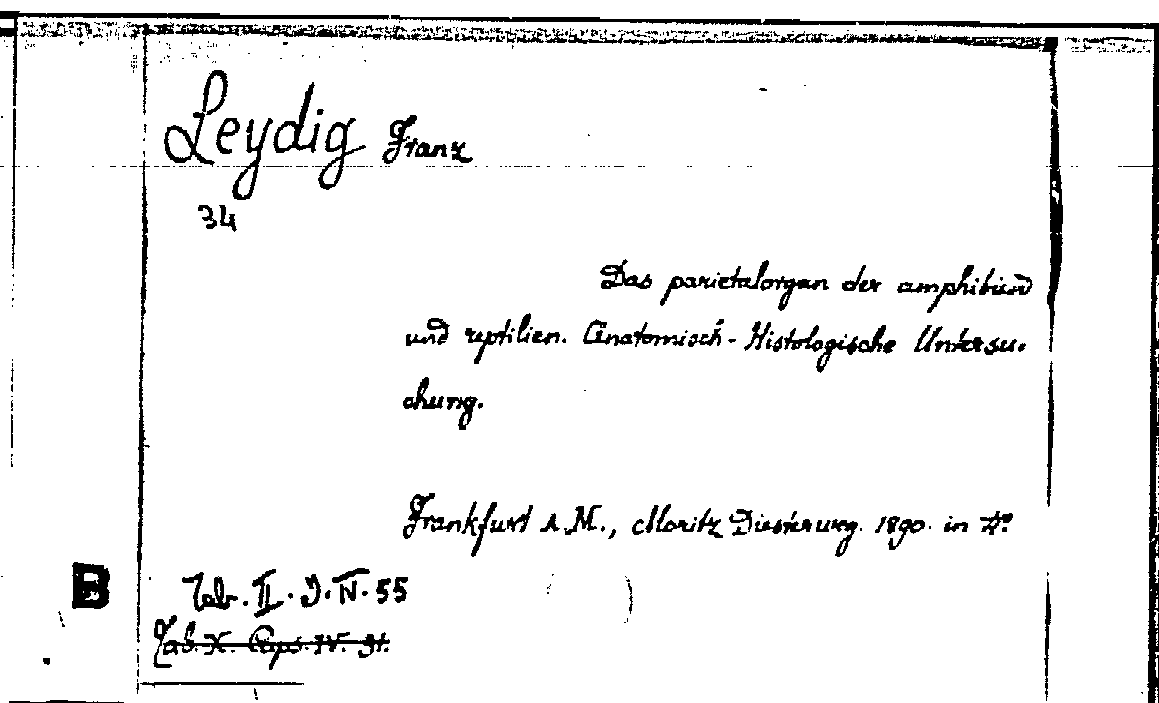 Leydig Franz
34
Das parietalorgan der amphibien
und reptilien. Anatomisch-Histologische Untersu-
chung.
Frankfurt a.M., Moritz Diesterweg. 1890. in 4°.
B Tab. II. I. N. 55
Tab. X. Caps. IV. 31.